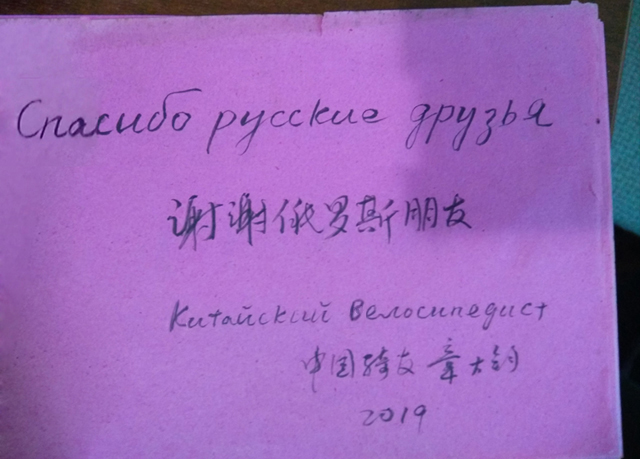 Спасибо русские друзья
谢谢俄罗斯朋友
Китайский Велосипедист
中国骑友 章大钧
2019